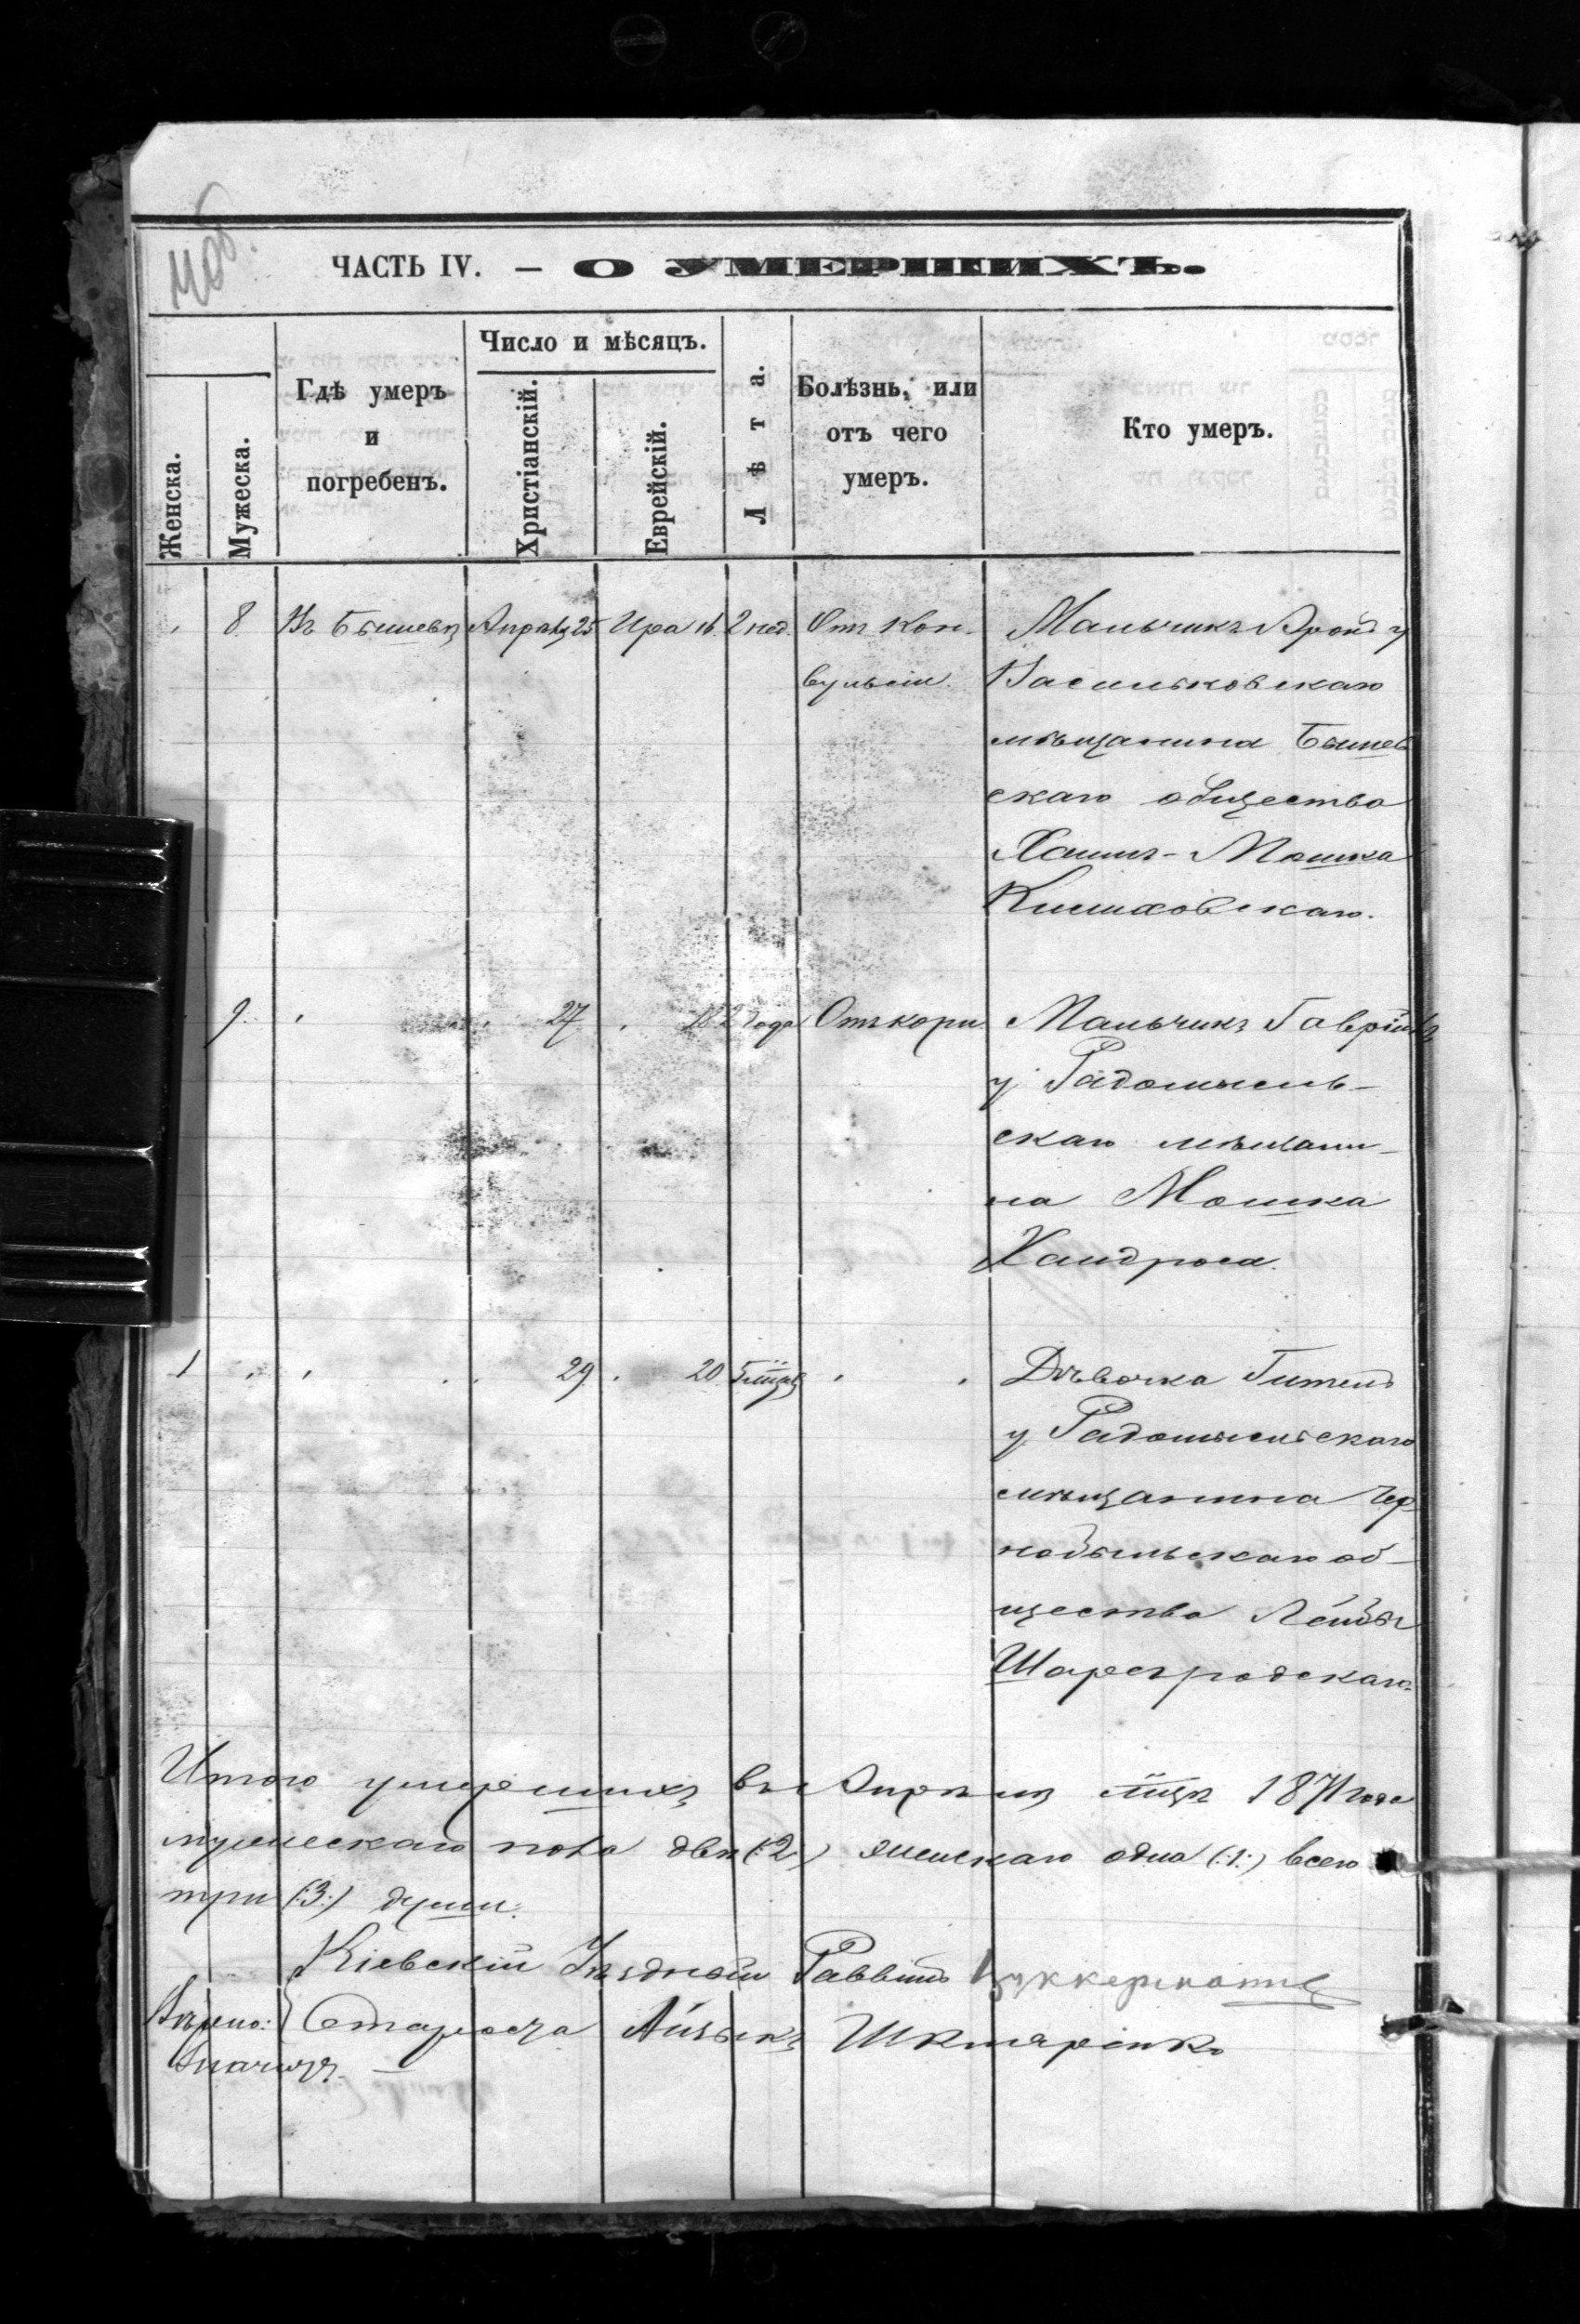 ЧАСТЬ IV. — О УМЕРШИХЪ.
Женска.
Мужеска.
Гдѣ умеръ
и
погребенъ.
Число и мѣсяцъ.
Христіанскій.
Еврейскій.
Лѣта.
Болѣзнь, или
отъ чего
умеръ.
Кто умеръ.
8. Въ Бышевѣ Апрѣля 25 Ира 16. 2 нед. Отъ кон-
вульсіи.
Мальчикъ у
Васильковскаго
мѣщанина Бышев
скаго общества
Хаимъ-Мошка
9. 27 18 2 года Отъ кори Мальчикъ Гавріилъ
у Радомысль-
скаго мѣщани-
на Мошка
Хандроса.
1 29 20 Дѣвочка
у Радомысльскаго
мѣщанина Чер
нобыльскаго об-
щества Лейбы
Шарегродскаго.
Итого умершихъ въ Апрѣлѣ мцѣ 1871 года
мужескаго пола двѣ (:2:) женскаго одна (:1:) всего
три (:3:) души.
Кіевскій Уѣздный Раввинъ
Вѣрно: Староста Айзыкъ